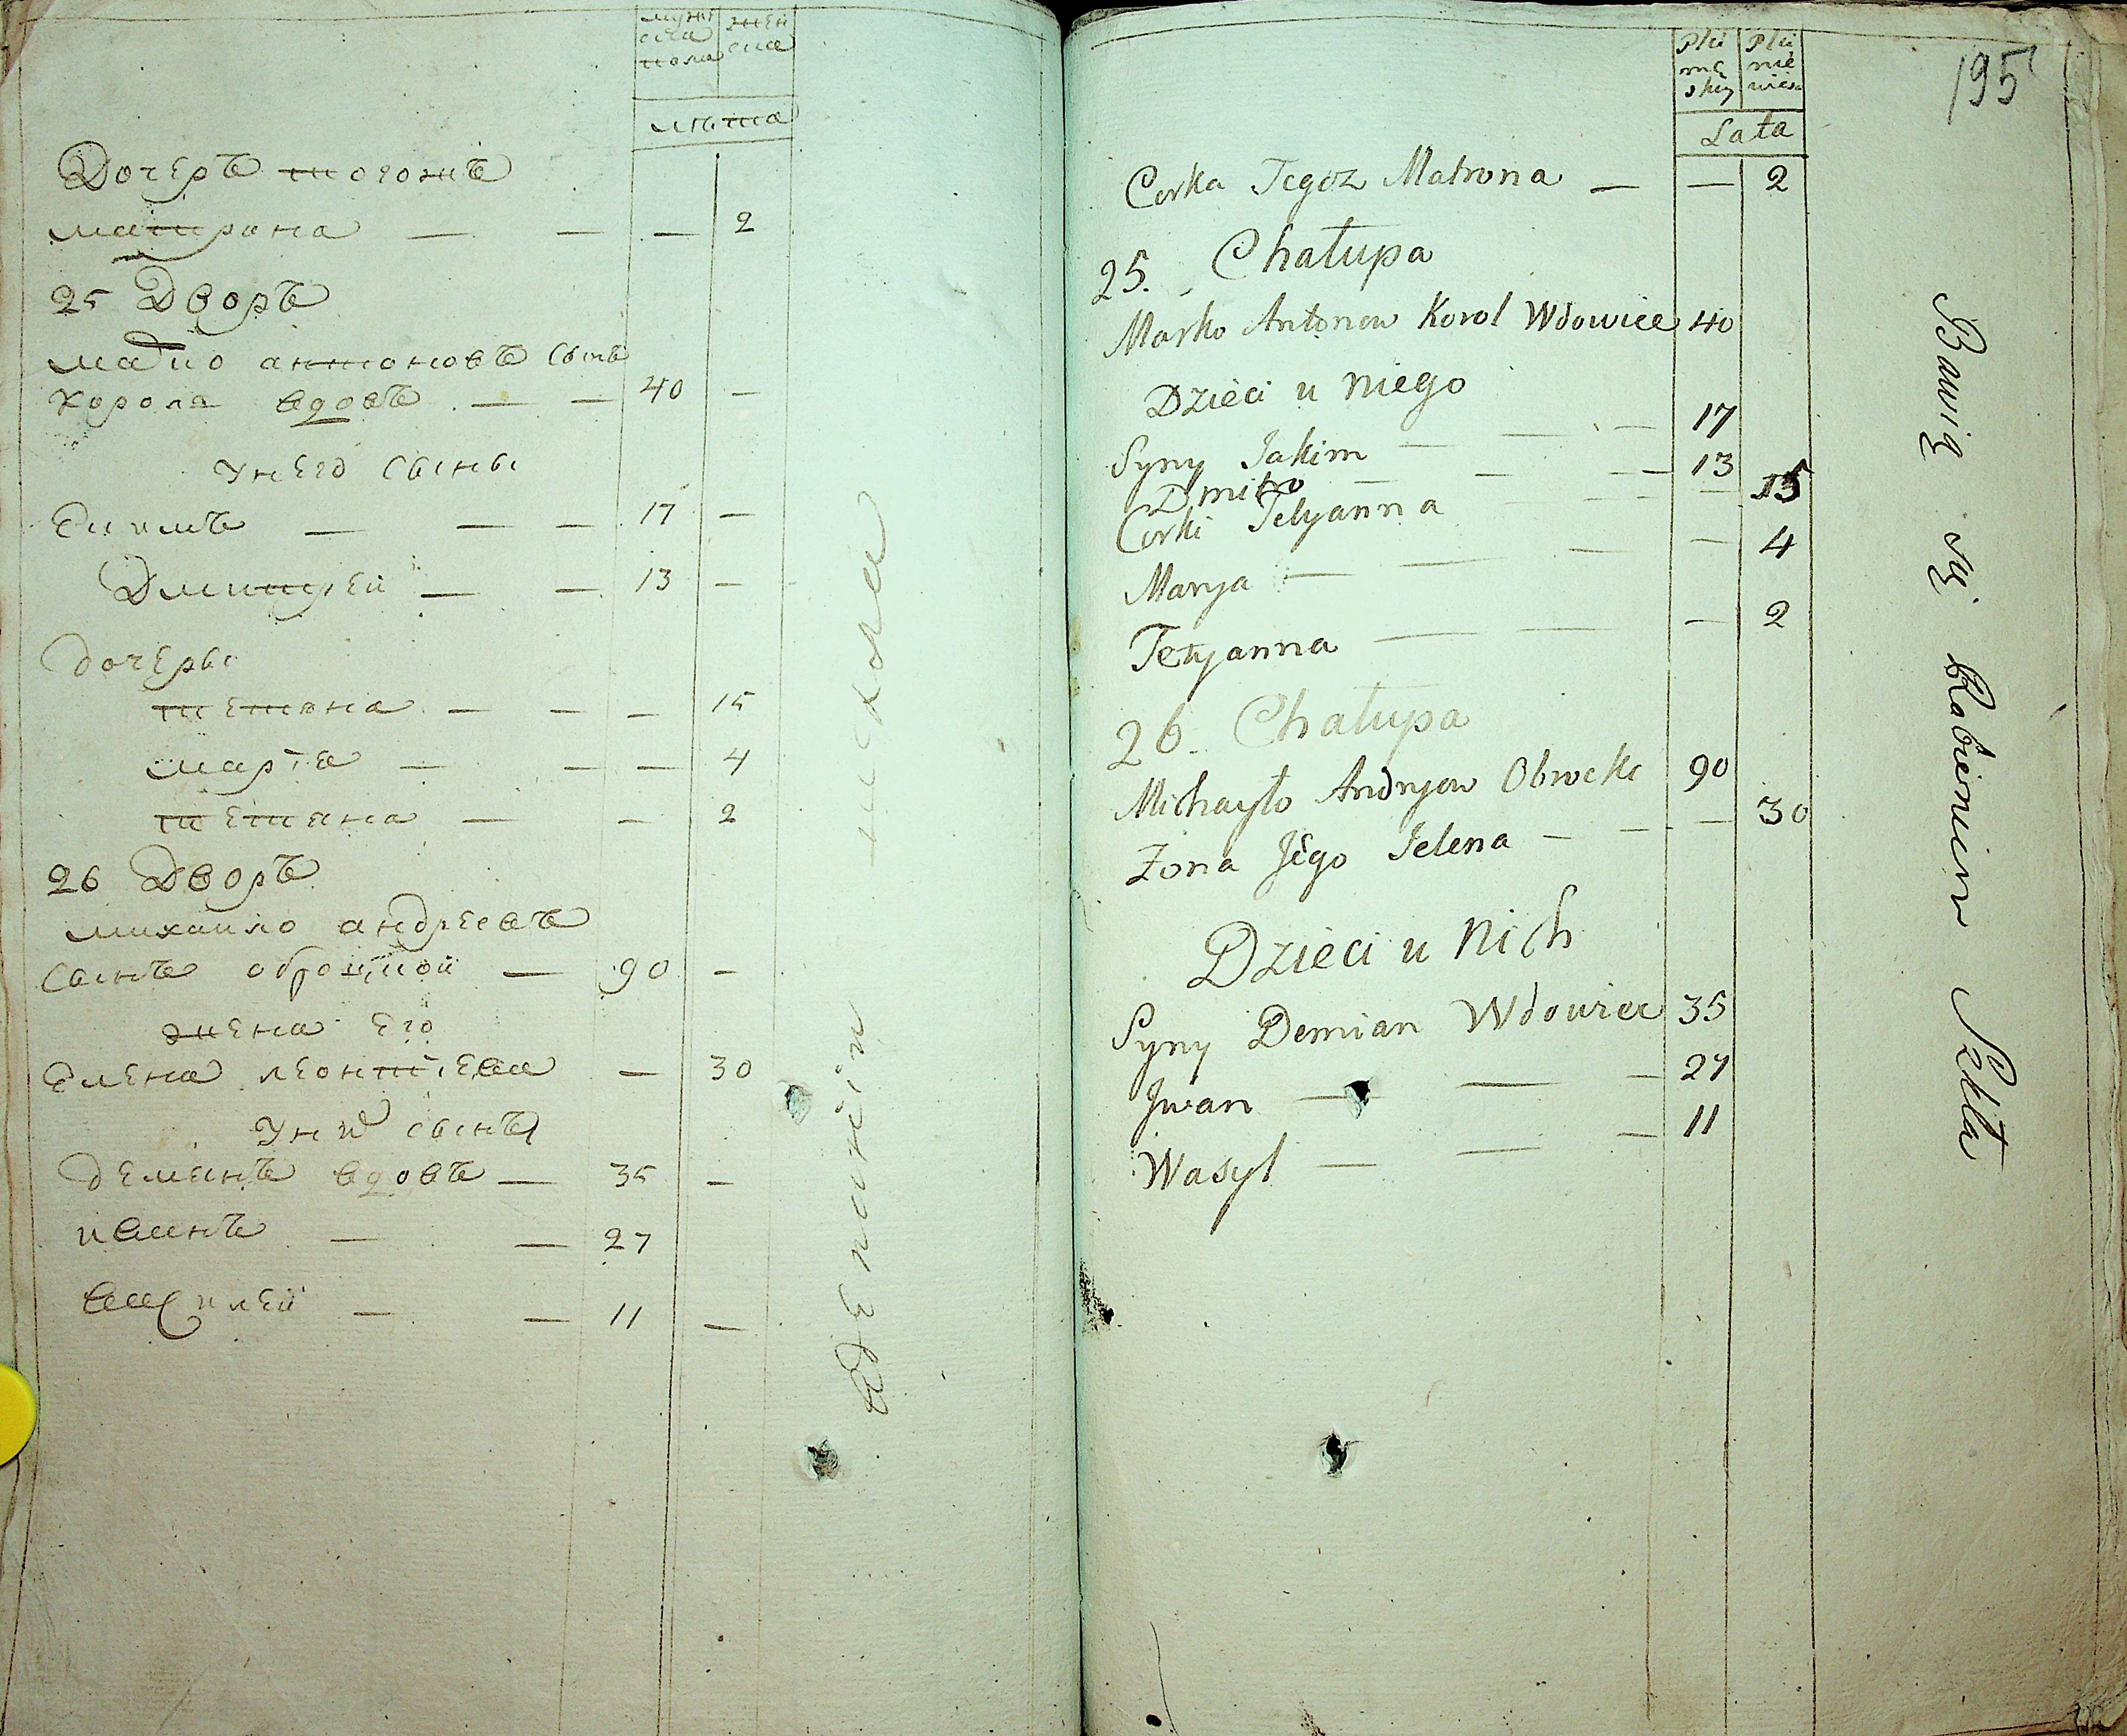 мужеска пола
женска
лѣта
Дочерь тогожъ
матрона — — — 2
25 Дворъ
марко антоновъ сынъ
король вдовъ — — 40 —
У него сыны
Екимъ — — — 17 —
Дмитрей — — 13 —
дочеры
тетяна — — — 15
марія — — — 4
тетяна — — 2
26 Дворъ
михаило андреевъ
сынъ оброцкой — 90 —
жена его
Елена леонтіева — 30
У них сынъ
демянъ вдовъ — 35 —
иванъ — — 27
василей — — 11 —
195
Płci męskiy
Płci niewies
Lata
Corka Tegoz Matrona — — 2
25. Chałupa
Marko Antonow Korol Wdowiec 40
Dzieci u niego
Syny Jakim — — — 17
Dmitro — — — 13
Corki Tetyanna — — — 15
Marya — — — — 4
Tetyanna — — — 2
26. Chałupa
Michayło Andryow Obrocki 90
Zona Jego Jelena — — — 30
Dzieci u nich
Syny Demian Wdowiec 35
Jwan — — — 27
Wasyl — — — 11
Bawią się Rabieniem Szkła